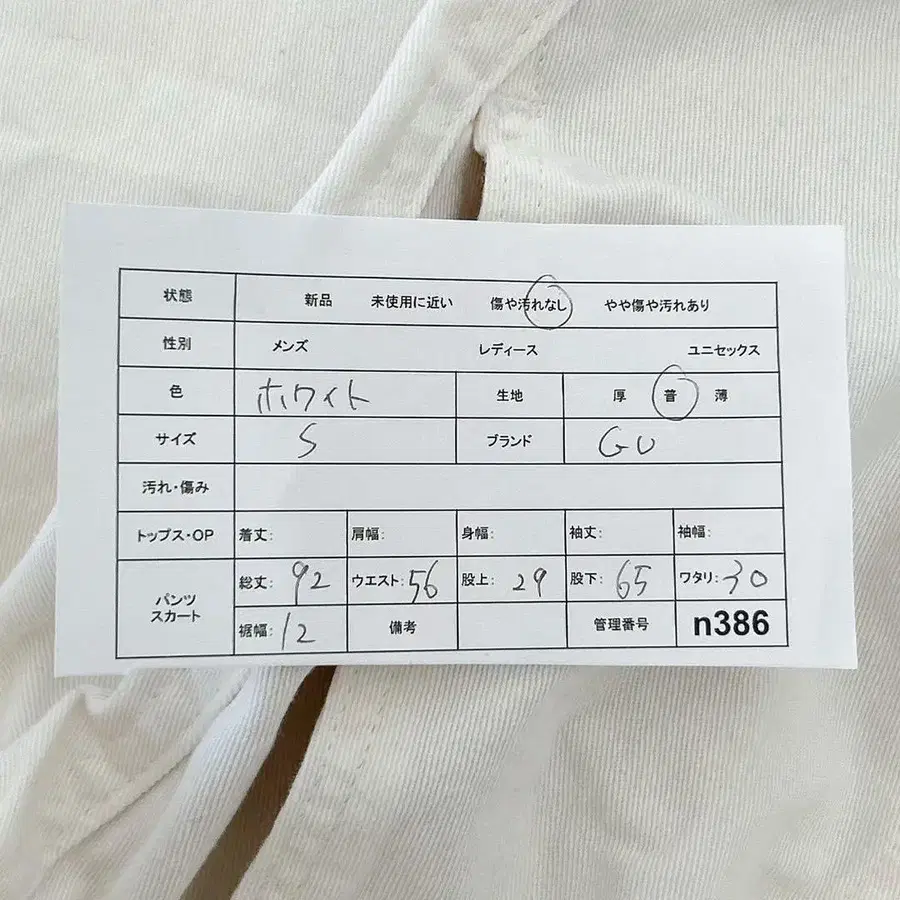 状態 新品 未使用に近い 傷や汚れなし やや傷や汚れあり
性別 メンズ レディース ユニセックス
色 ホワイト 生地 厚 普 薄
サイズ S ブランド GU
汚れ・傷み
トップス・OP 着丈: 肩幅: 身幅: 袖丈: 袖幅:
パンツ スカート 総丈: 92 ウエスト: 56 股上: 29 股下: 65 ワタリ: 30
裾幅: 12 備考 管理番号 n386